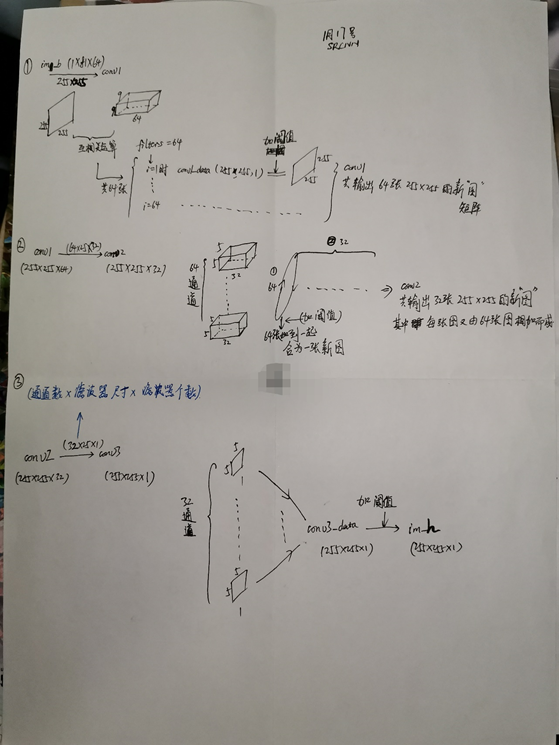 1月17号
SRCNN
① im_b (1×81×64) conv1
255×255
9
9
64
255
255
互相关运算
filters=64
共64张
i=1时 conv1_data (255×255,1)
加阈值
255
255
i=64
conv1
共输出64张 255×255的新"图"
矩阵
② conv1 (64×25×32) conv2
(255×255×64) (255×255×32)
64
通
道
5
5
32
5
5
32
① 64
② 32
(加阈值)
64张加到一起
合为一张新图
conv2
共输出32张 255×255的新"图"
其中 每张图又由64张图相加而成
③
(通道数×滤波器尺寸×滤波器个数)
conv2 (32×25×1) conv3
(255×255×32) (255×255×1)
32
通
道
5
5
1
5
5
1
conv3_data
(255×255×1)
加阈值
im_h
(255×255×1)